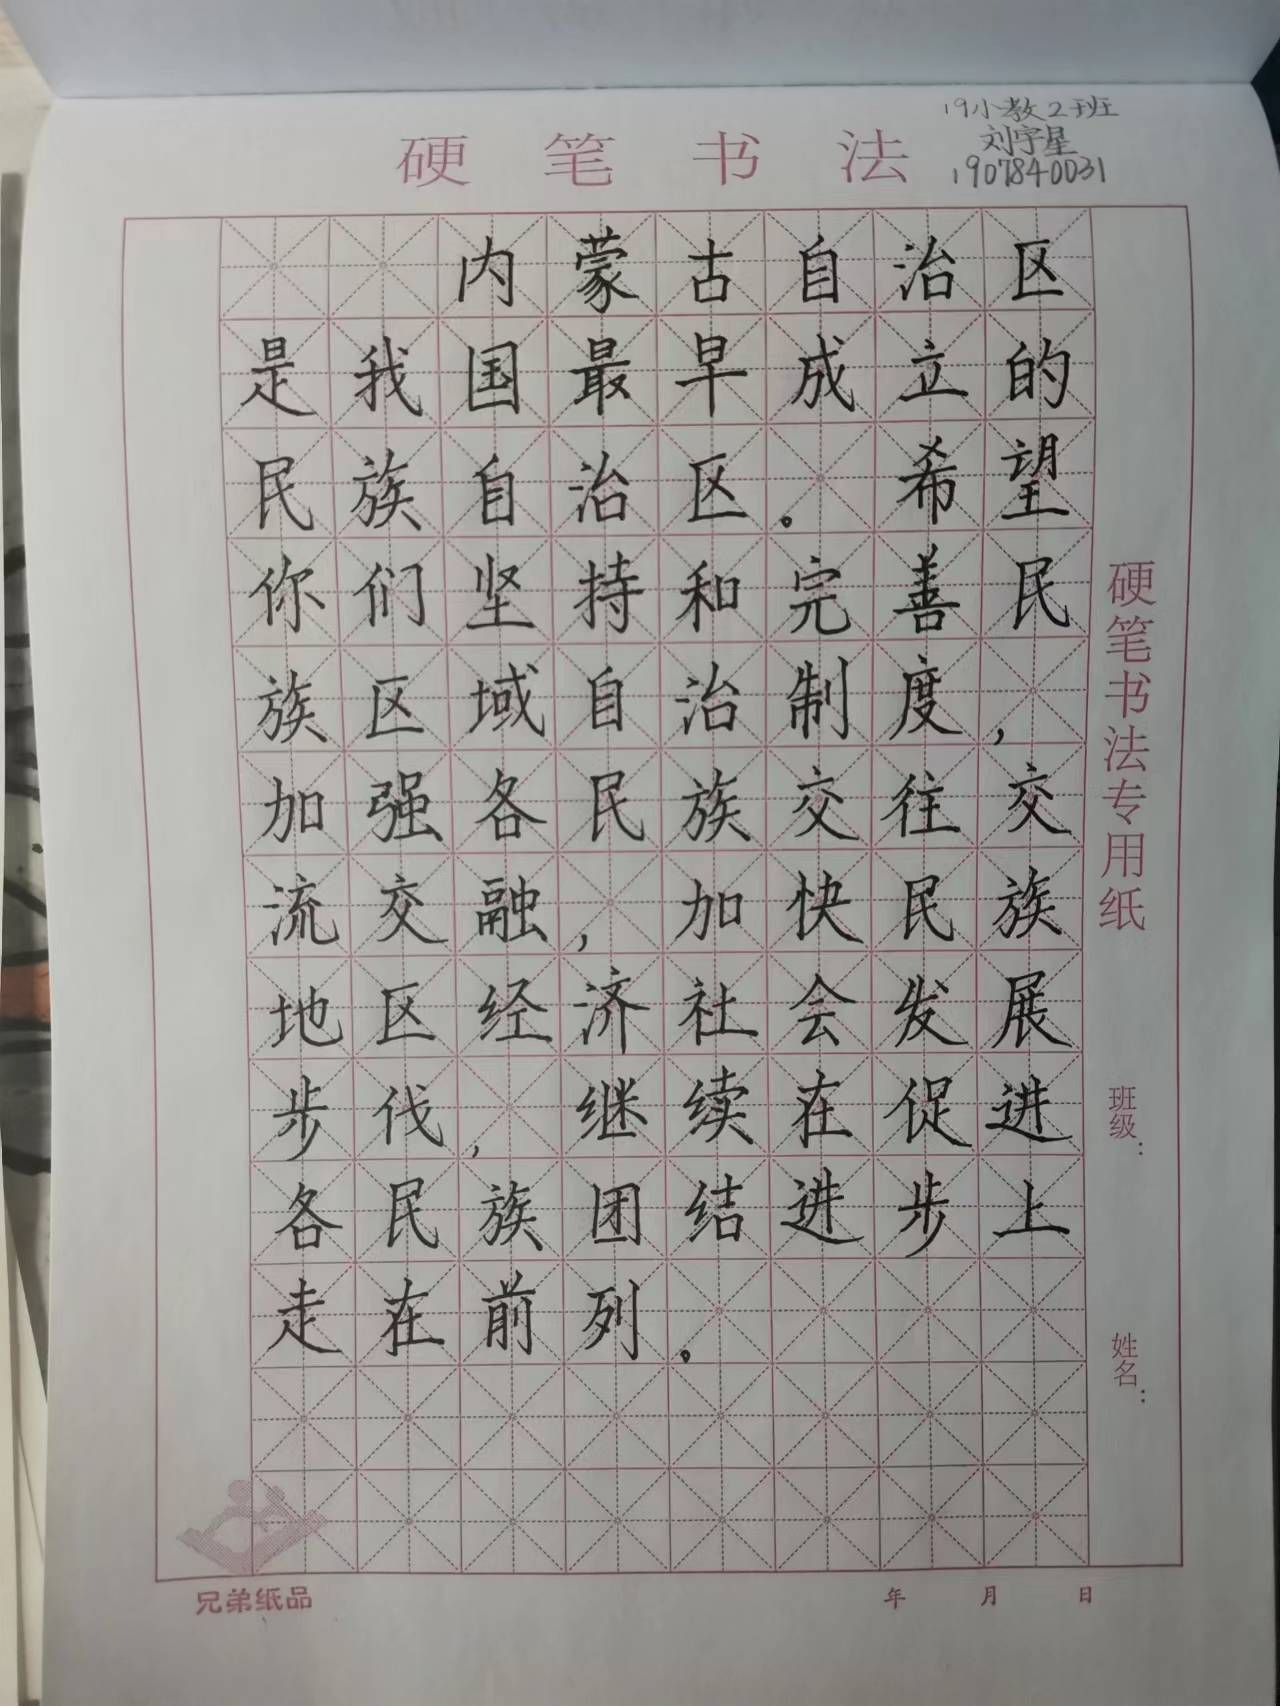 19小教2班
刘宇星
1907840031
硬笔书法
内蒙古自治区
是我国最早成立的
民族自治区。希望
你们坚持和完善民
族区域自治制度，
加强各民族交往交
流交融，加快民族
地区经济社会发展
步伐，继续在促进
各民族团结进步上
走在前列。
硬笔书法专用纸
班级：
姓名：
兄弟纸品
年 月 日